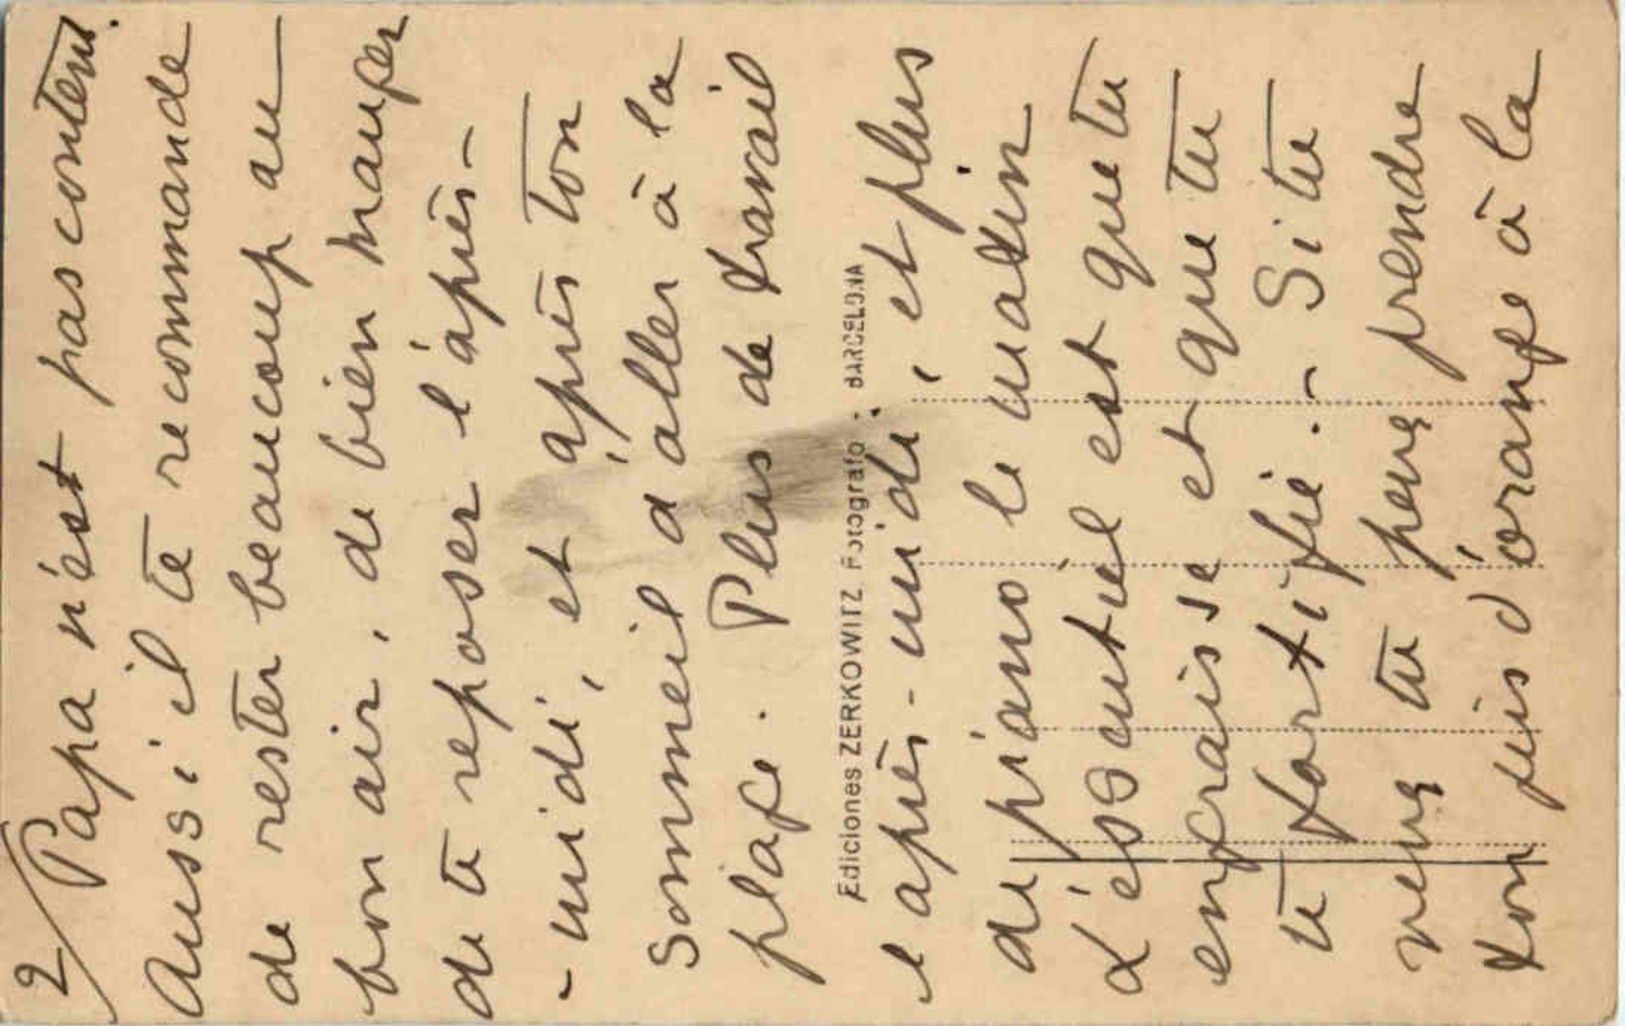 2/ Papa n'est pas content.
Aussi il te recommande
de rester beaucoup au
bon air, de bien manger
de te reposer l'après-
-midi, et après ton
sommeil d'aller à la
plage. Plus de travail
Ediciones ZERKOWITZ Fotografo - BARCELONA
l'après-midi, et plus
de piano le matin
L'essentiel est que tu
engraisse et que tu
te fortifie. - Si tu
veux tu peux prendre
ton jus d'orange à la